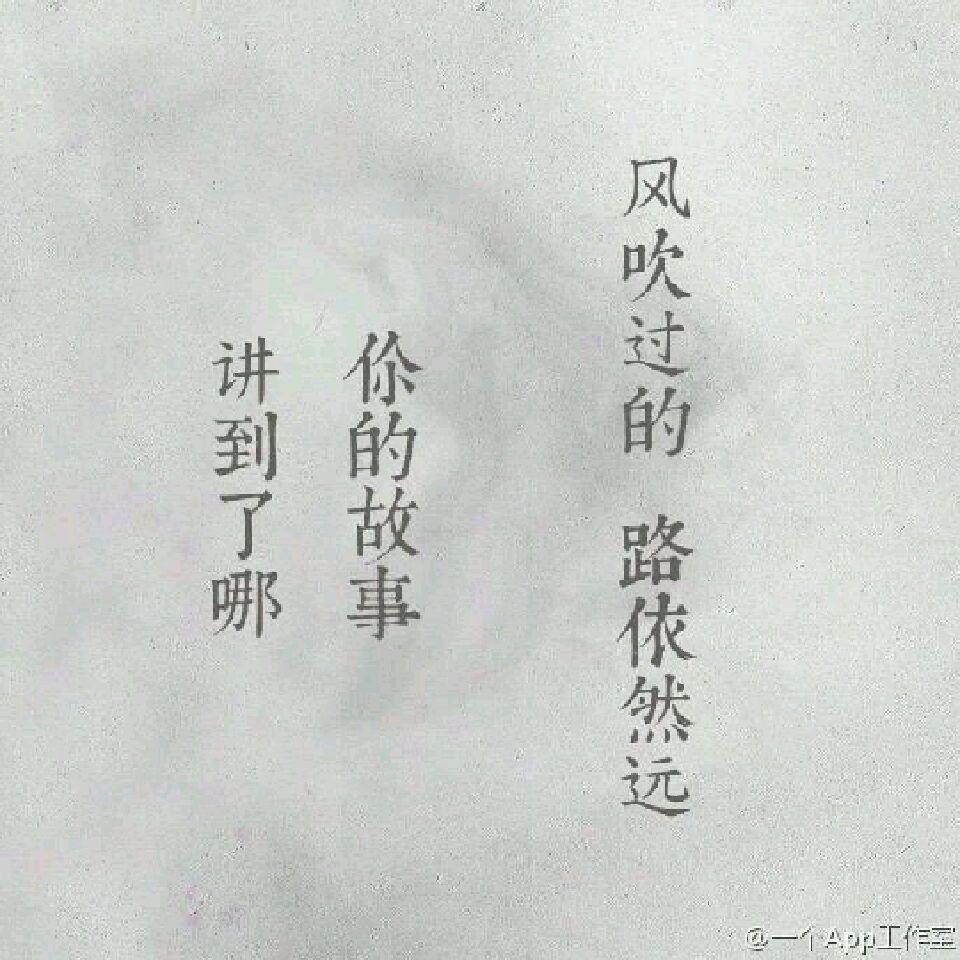 风吹过的 路依然远
你的故事
讲到了哪
@一个App工作室